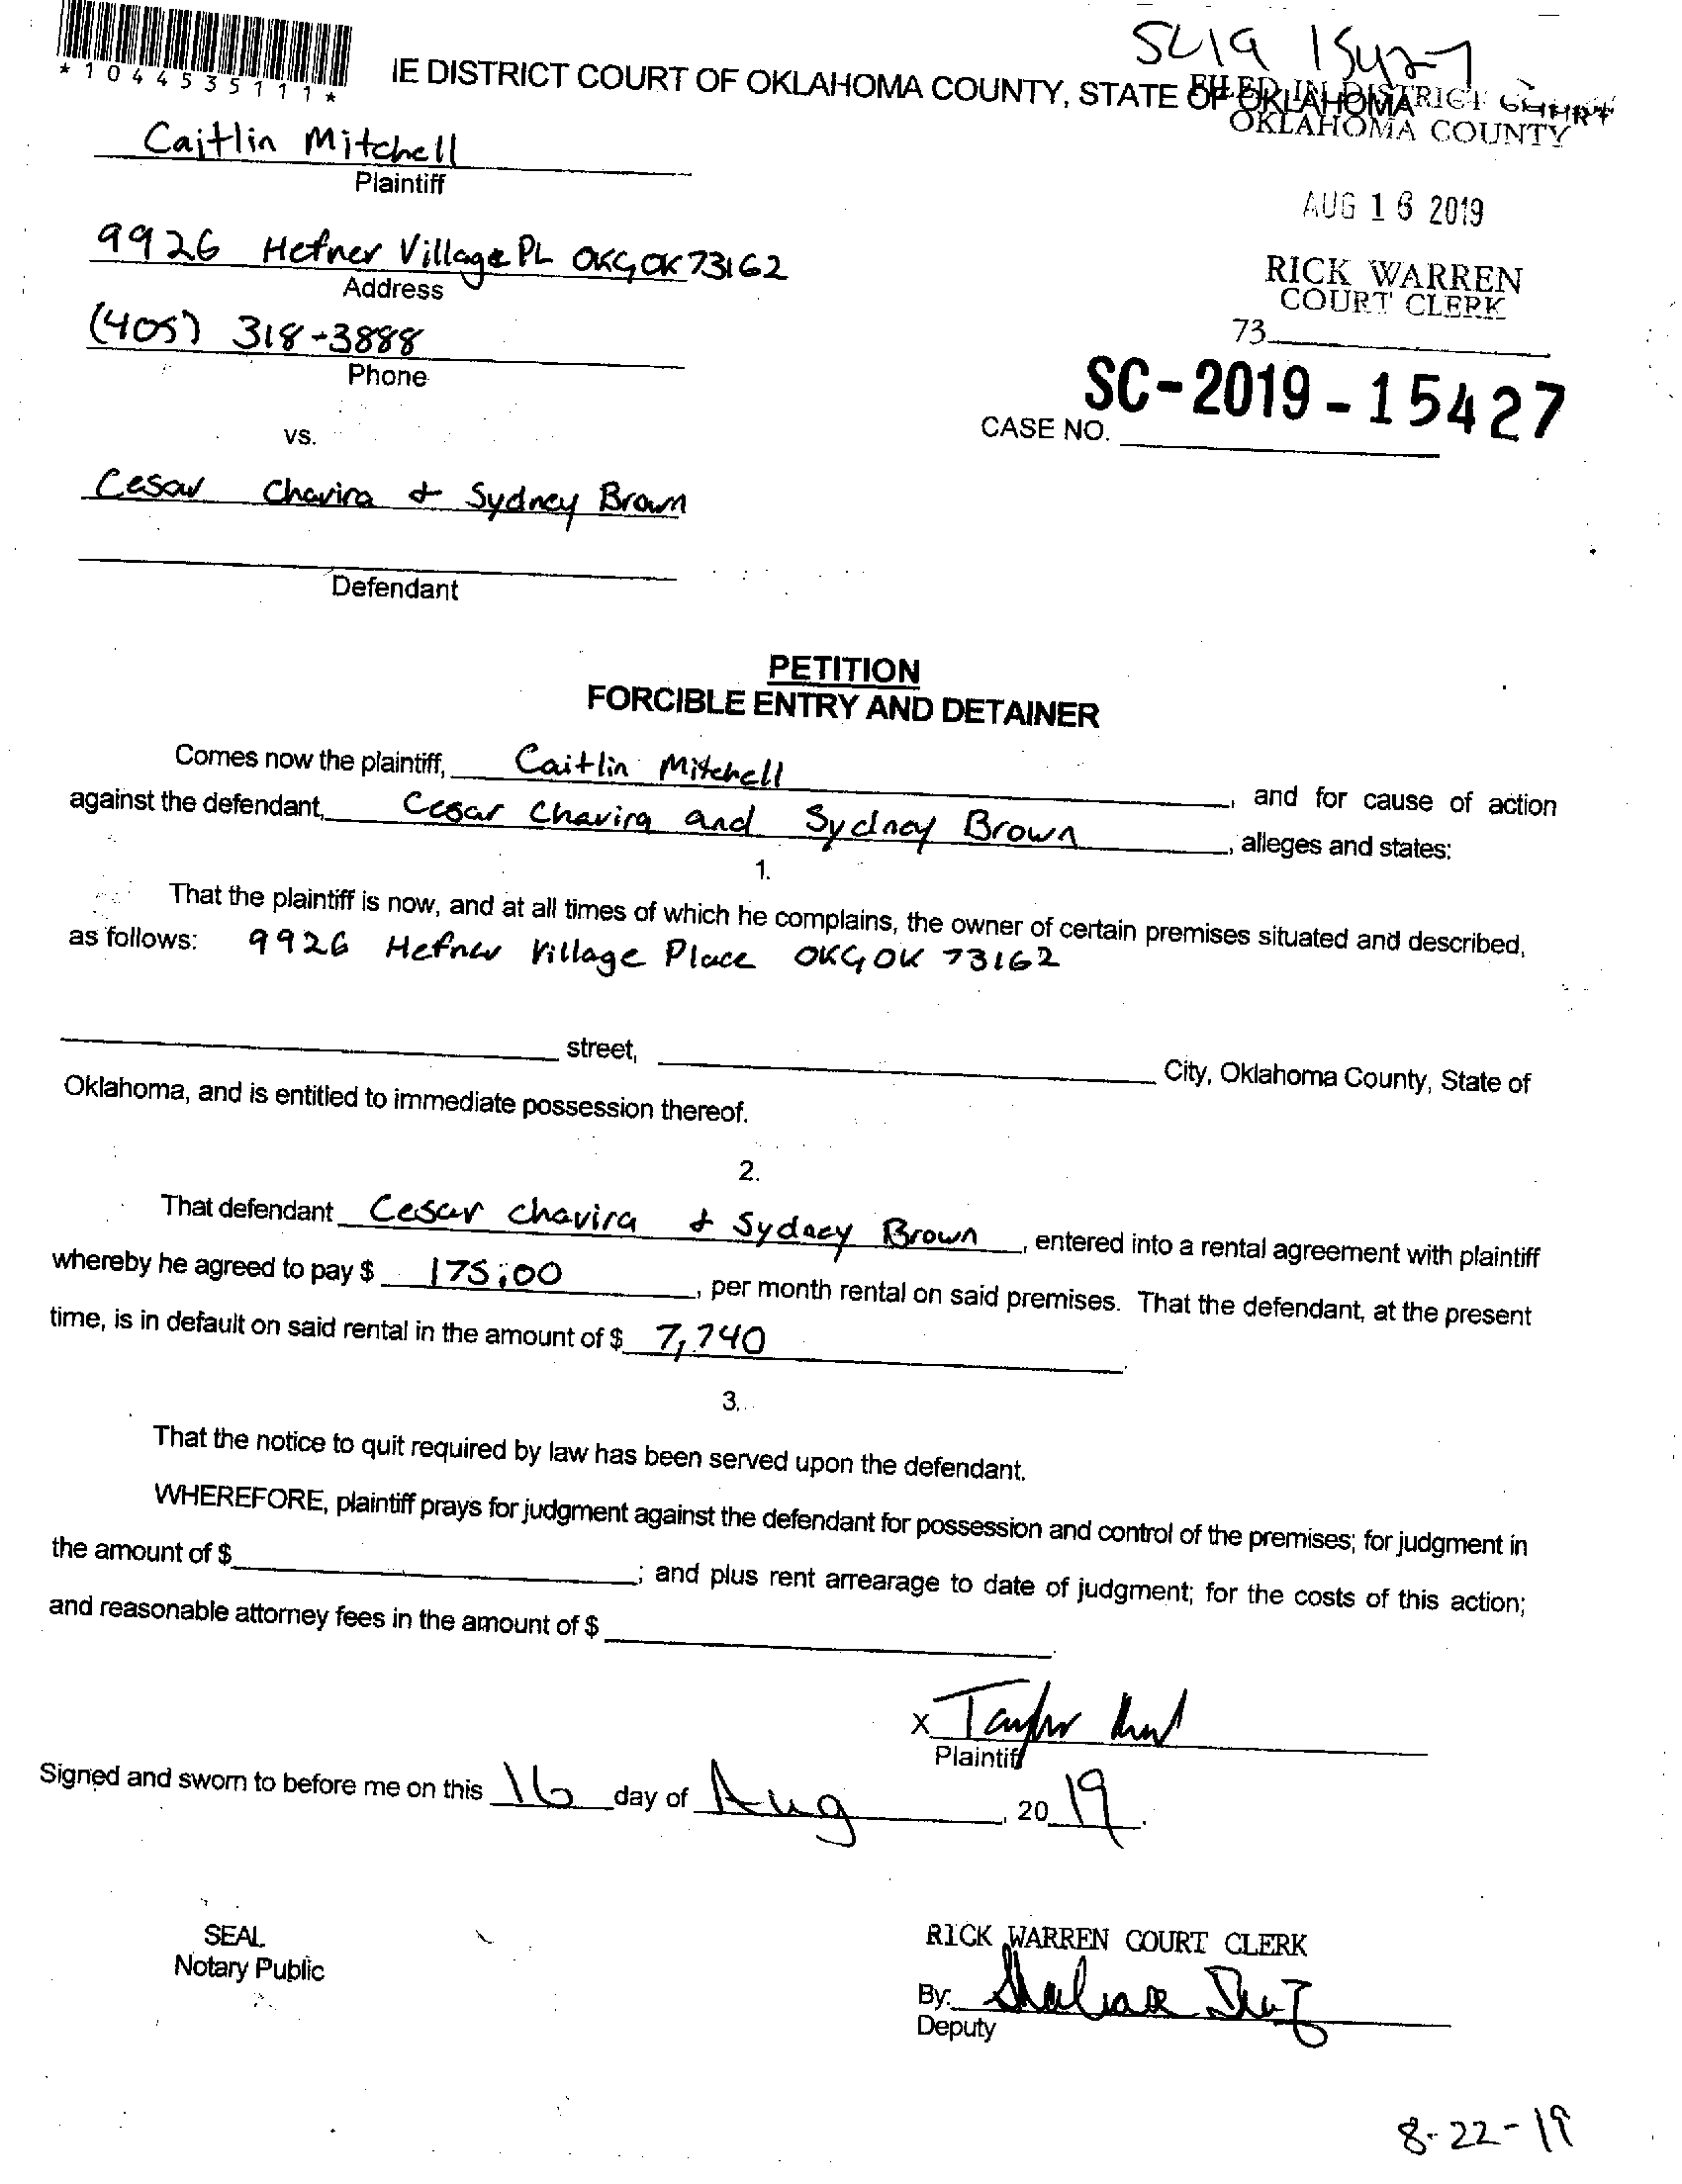 SC19 15427
*1044535111*
IE DISTRICT COURT OF OKLAHOMA COUNTY, STATE OF OKLAHOMA
FILED IN DISTRICT COURT
OKLAHOMA COUNTY
Caitlin Mitchell
Plaintiff
AUG 16 2019
9926 Hefner Village PL OKC, OK 73162
Address
RICK WARREN
COURT CLERK
(405) 318-3888
73
Phone
SC-2019-15427
CASE NO.
vs.
Cesar Chavira & Sydney Brown
Defendant
PETITION
FORCIBLE ENTRY AND DETAINER
Comes now the plaintiff, Caitlin Mitchell, and for cause of action
against the defendant, Cesar Chavira and Sydney Brown, alleges and states:
1.
That the plaintiff is now, and at all times of which he complains, the owner of certain premises situated and described,
as follows: 9926 Hefner Village Place OKC, OK 73162
street, City, Oklahoma County, State of
Oklahoma, and is entitled to immediate possession thereof.
2.
That defendant Cesar Chavira & Sydney Brown, entered into a rental agreement with plaintiff
whereby he agreed to pay $ 175;00, per month rental on said premises. That the defendant, at the present
time, is in default on said rental in the amount of $ 7,740.
3.
That the notice to quit required by law has been served upon the defendant.
WHEREFORE, plaintiff prays for judgment against the defendant for possession and control of the premises; for judgment in
the amount of $ ; and plus rent arrearage to date of judgment; for the costs of this action;
and reasonable attorney fees in the amount of $ .
X Taylor
Plaintiff
Signed and sworn to before me on this 16 day of Aug, 2019.
SEAL
Notary Public
RICK WARREN COURT CLERK
By:
Deputy
8-22-19